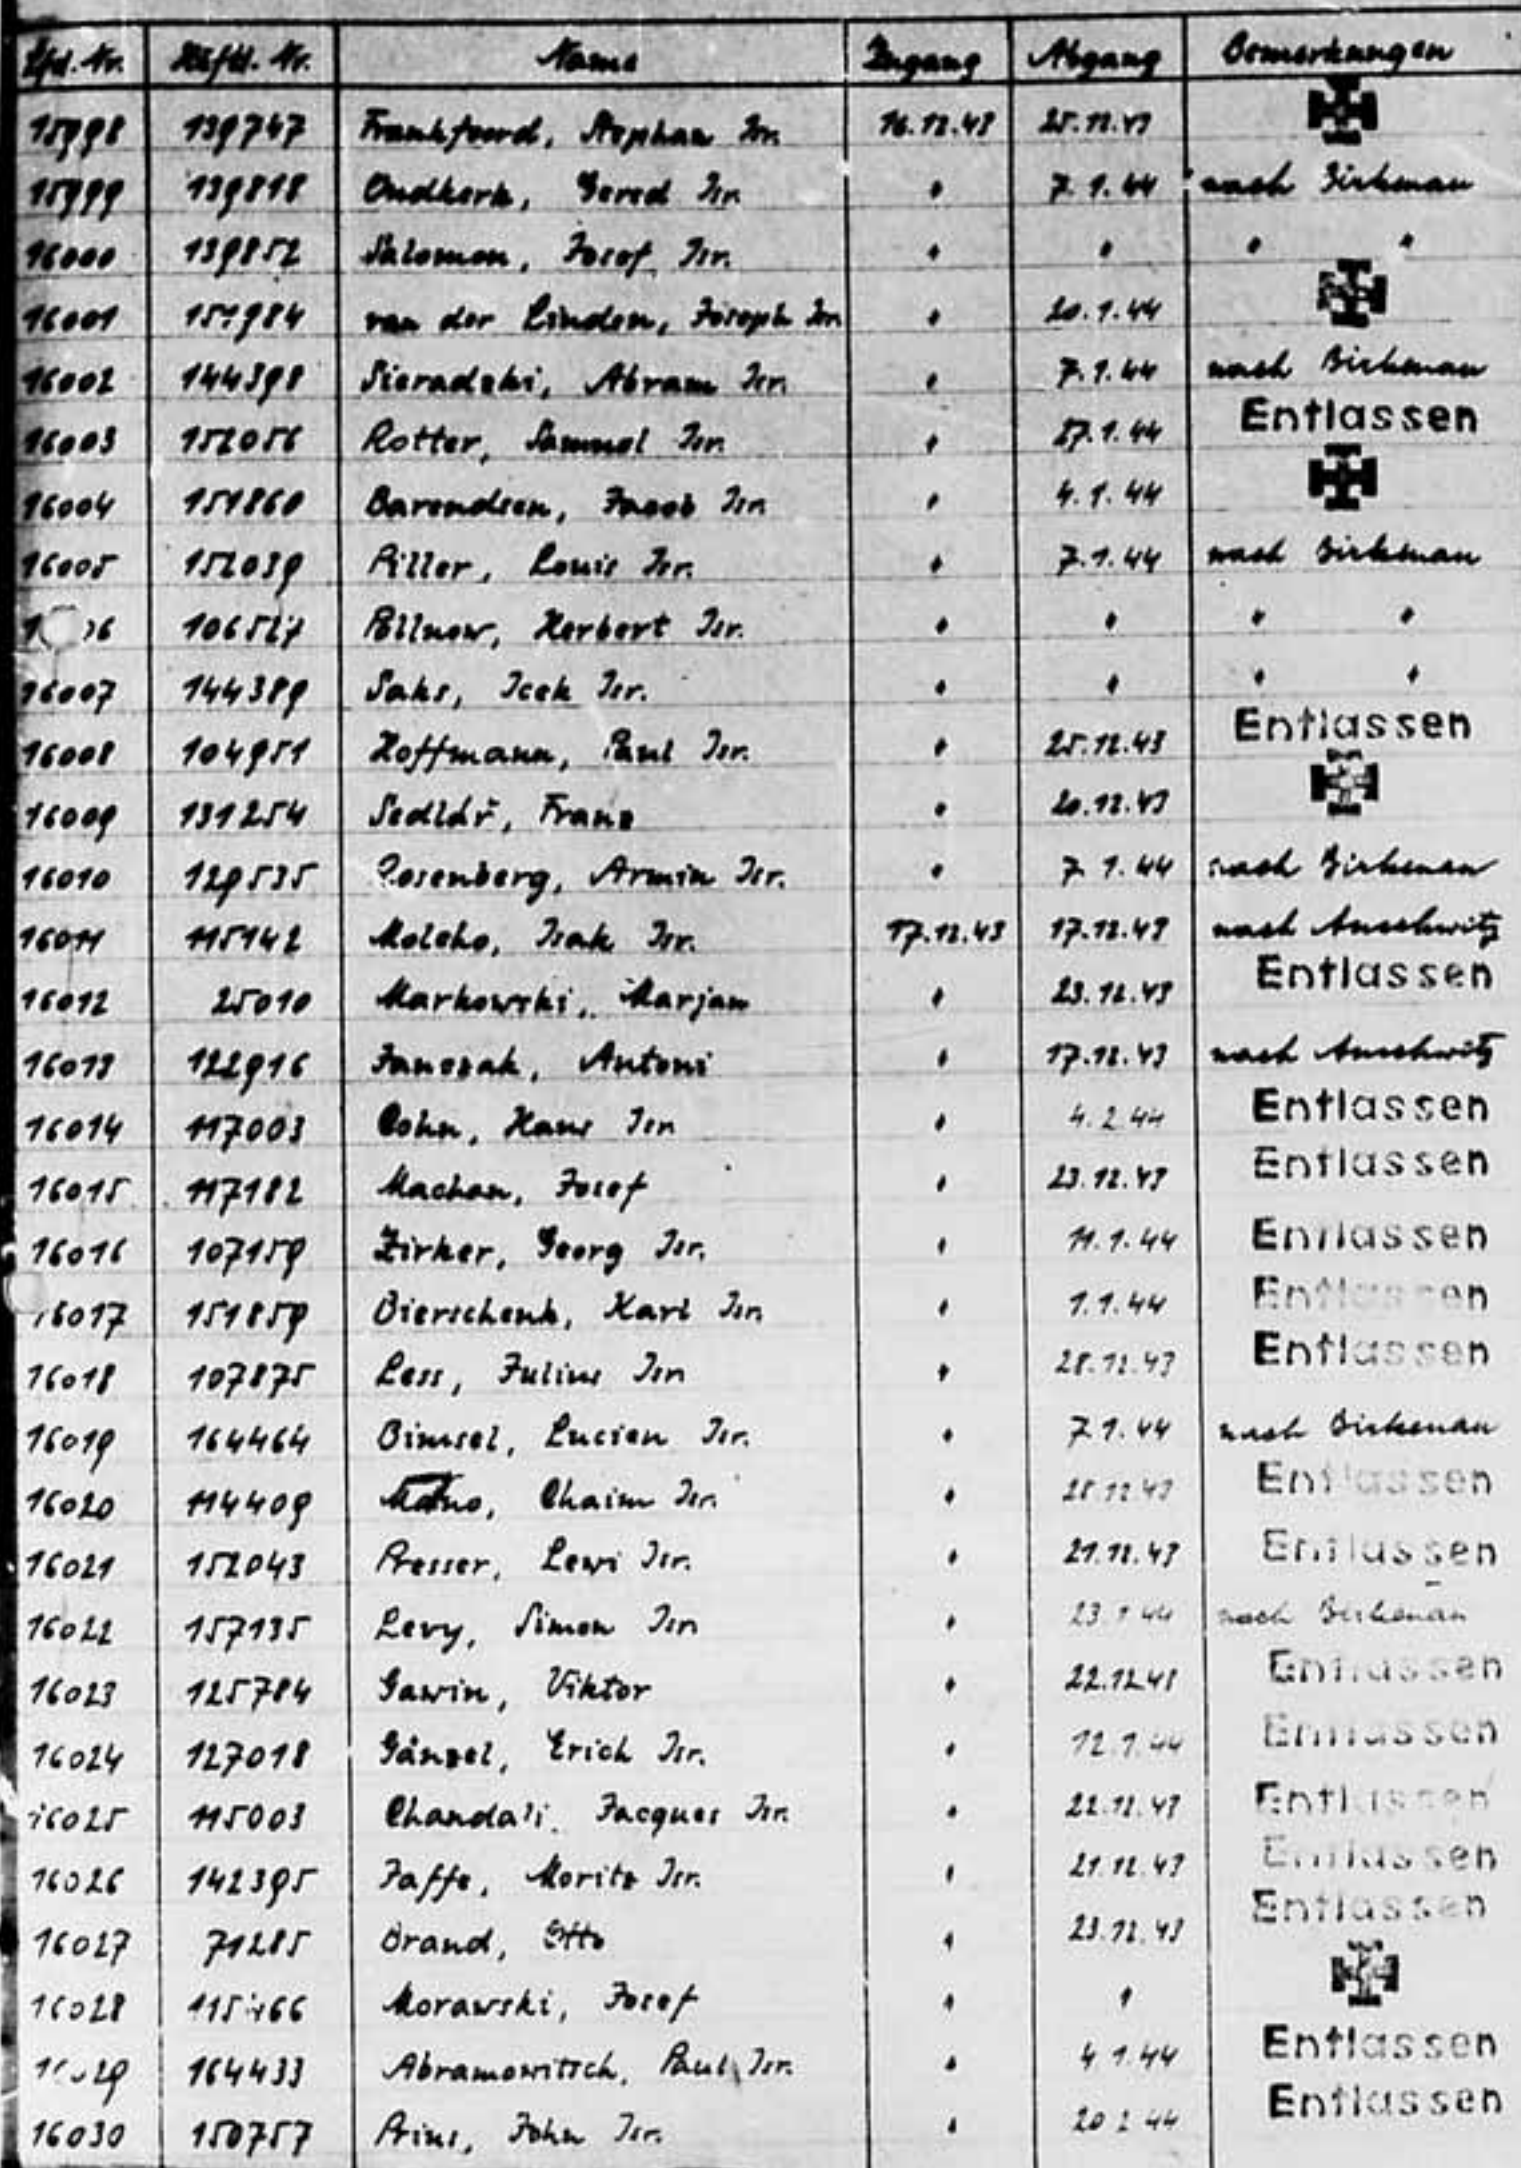 Lfd. Nr. Häftl. Nr. Name Zugang Abgang Bemerkungen
15998 139747 Frankfoord, Stephan Isr. 16.12.43 25.12.43
15999 139818 Oudkerk, Gered Isr. " 7.1.44 nach Birkenau
16000 139852 Salomon, Josef Isr. " " " "
16001 151984 van der Linden, Joseph Isr. " 20.1.44
16002 144398 Sieradzki, Abram Isr. " 7.1.44 nach Birkenau
16003 152056 Rotter, Sammel Isr. " 27.1.44 Entlassen
16004 151860 Barendsen, Jacob Isr. " 4.1.44
16005 152039 Piller, Louis Isr. " 7.1.44 nach Birkenau
106527 Pollnow, Herbert Isr. " " " "
16007 144389 Saks, Icek Isr. " " " "
16008 104951 Hoffmann, Paul Isr. " 25.12.43 Entlassen
16009 131254 Sedlář, Franz " 20.12.43
16010 129535 Rosenberg, Armin Isr. " 7.1.44 nach Birkenau
16011 115142 Moleho, Isak Isr. 17.12.43 17.12.43 nach Auschwitz
16012 25010 Markowski, Marjan " 23.12.43 Entlassen
16013 122916 Janczak, Antoni " 17.12.43 nach Auschwitz
16014 117003 Cohn, Hans Isr. " 4.2.44 Entlassen
16015 117182 Machan, Josef " 23.12.43 Entlassen
16016 107159 Zirker, Georg Isr. " 11.1.44 Entlassen
16017 151859 Bierschenk, Karl Isr. " 1.1.44 Entlassen
16018 107875 Less, Julius Isr. " 28.12.43 Entlassen
16019 164464 Bimsel, Lucien Isr. " 7.1.44 nach Birkenau
16020 114409 Chaim Isr. " 28.12.43 Entlassen
16021 152043 Presser, Lewi Isr. " 21.12.43 Entlassen
16022 157135 Levy, Simon Isr. " 23.1.44 nach Birkenau
16023 125784 Gawin, Viktor " 22.12.43 Entlassen
16024 127018 Gänzel, Erich Isr. " 12.1.44 Entlassen
16025 115003 Chandali, Jacques Isr. " 22.12.43 Entlassen
16026 142395 Jaffe, Moritz Isr. " 21.12.43 Entlassen
16027 71285 Brand, Otto " 23.12.43 Entlassen
16028 115466 Morawski, Josef " "
16029 164433 Abramowitsch, Paul Isr. " 4.1.44 Entlassen
16030 150757 Prins, John Isr. " 20.2.44 Entlassen